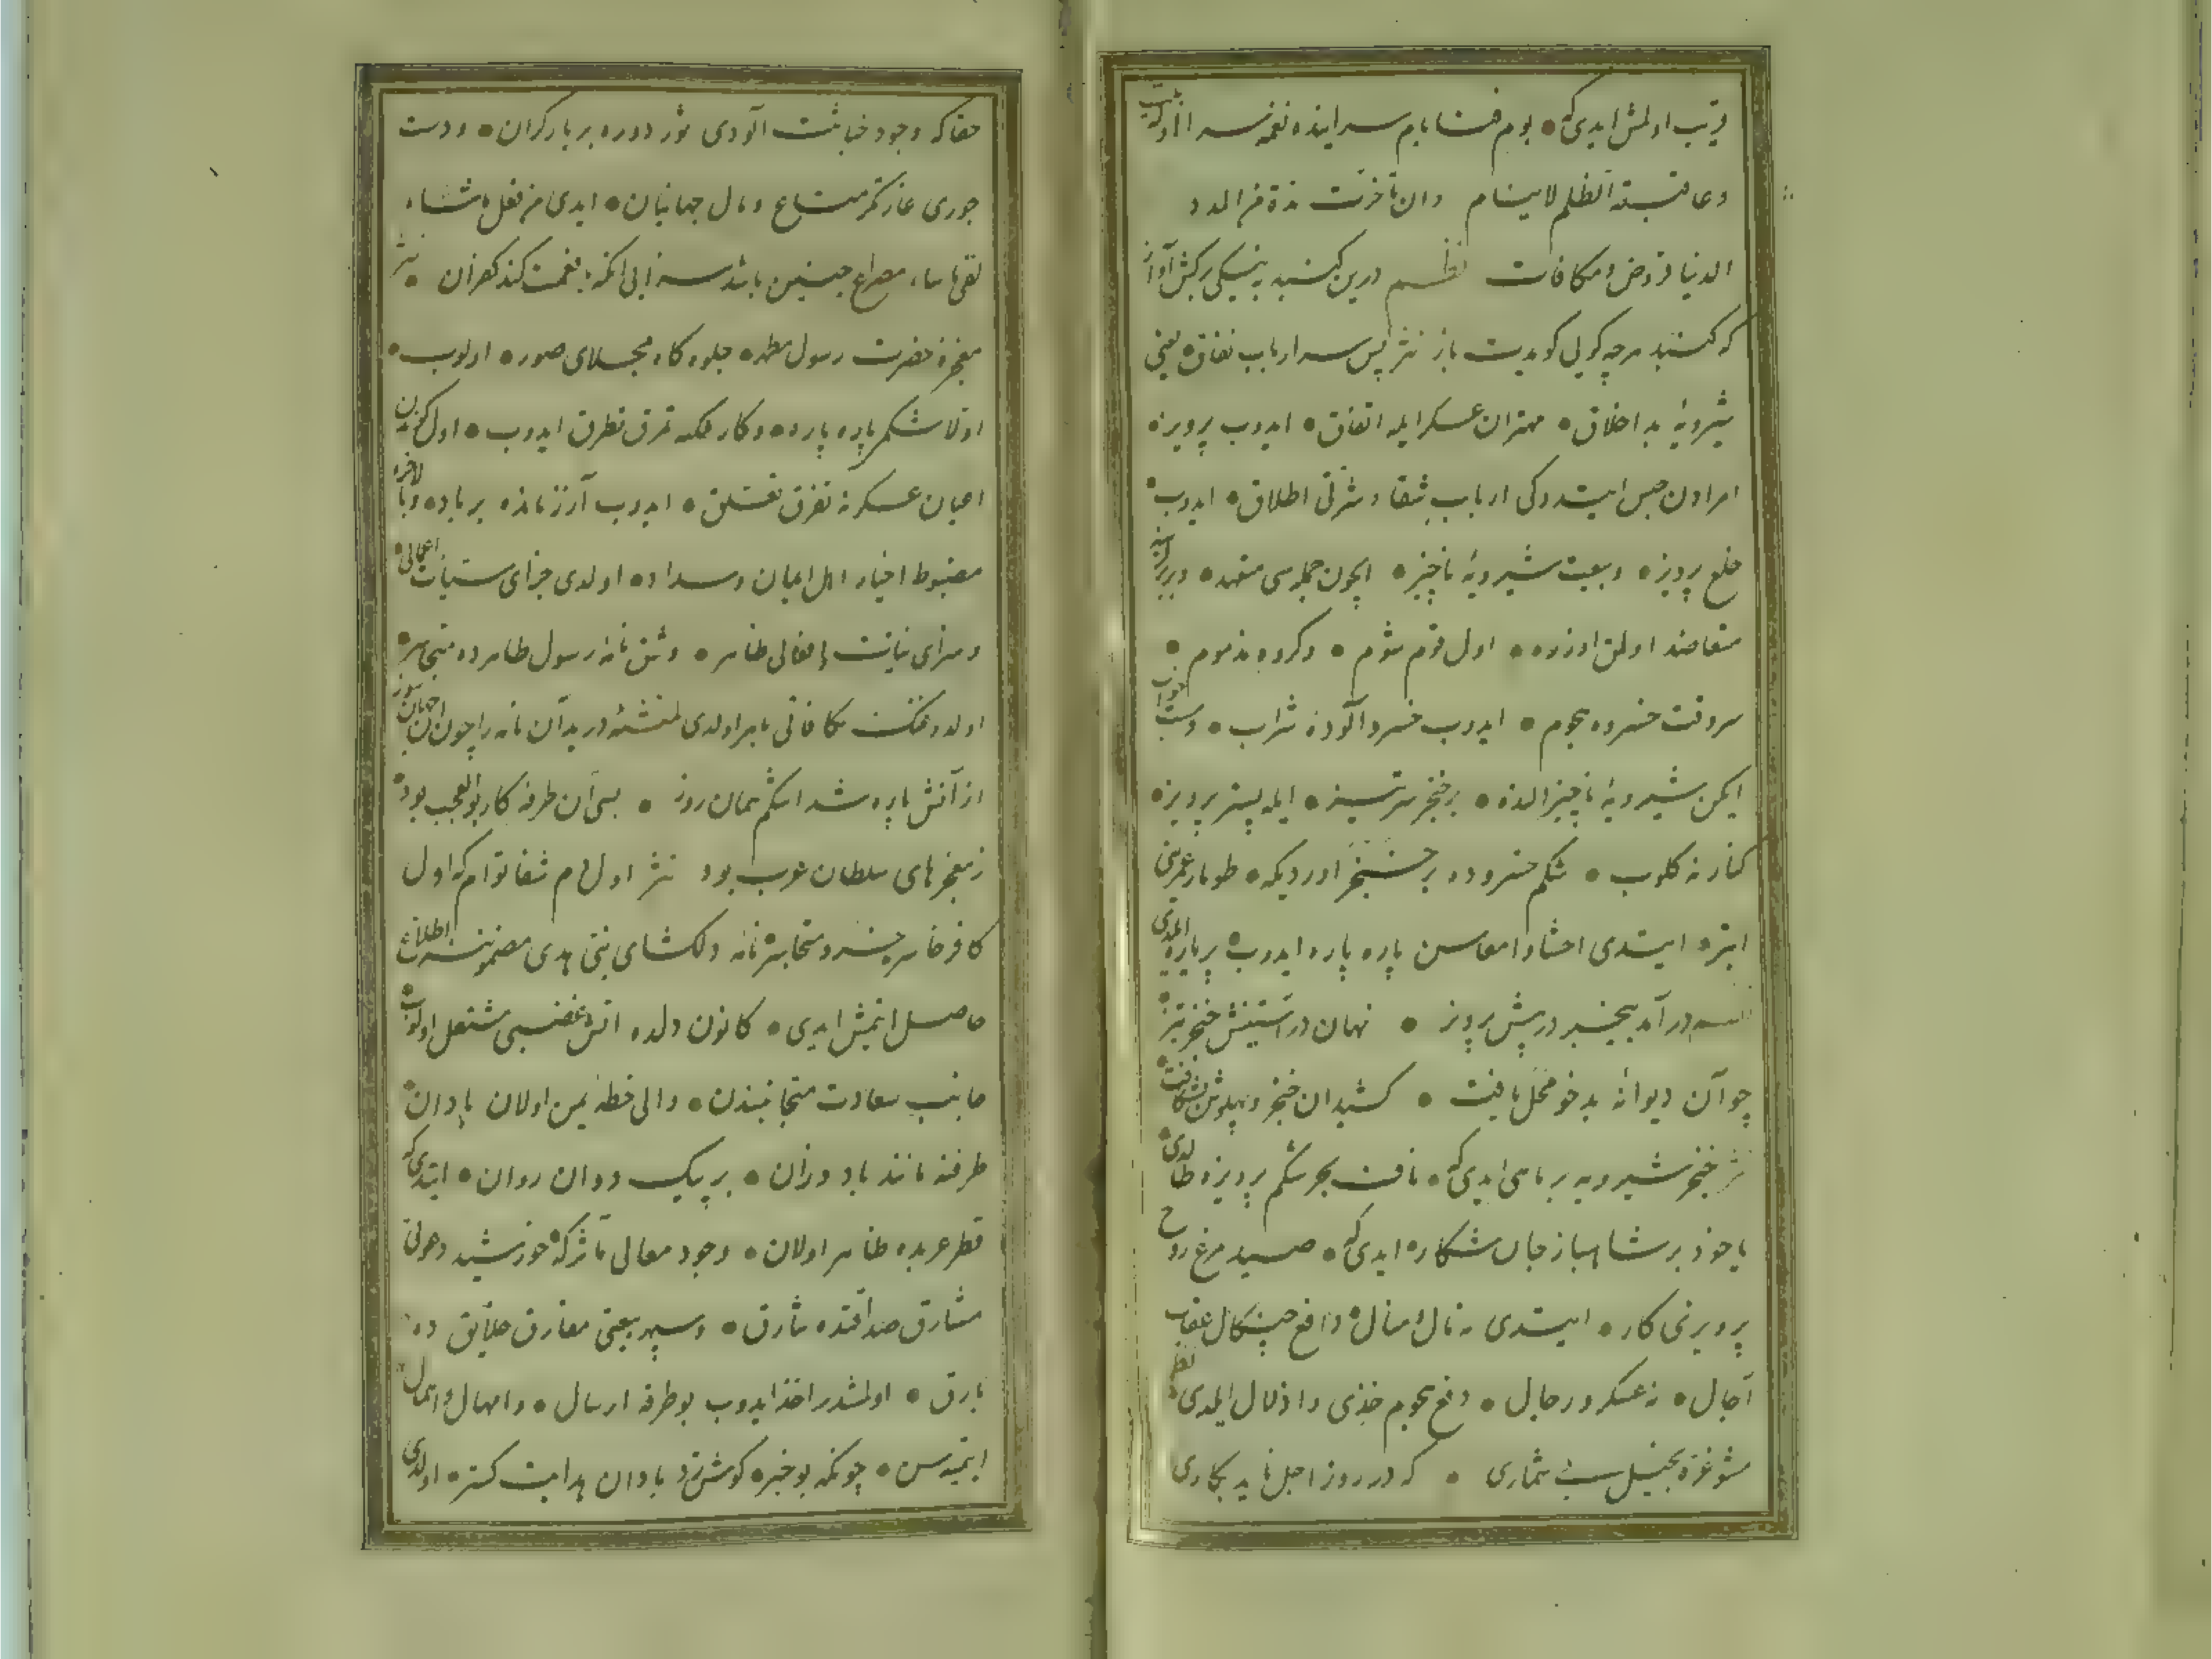 قریب اولمش ایدی که • بوم فنا بام سراینده نغمه سرا اولوب
وعاقبة الظلم لاینام وان تأخرت مدة من المدد
الدنیا قروض و مکافات نظم درین کنبد به نیکی برکش آواز
که کنبد هرچه کویی کویدت باز نثر پس سر ارباب نفاق • یعنی
شیرویهٔ بد اخلاق • مهتران عسکر ایله اتفاق • ایدوب پرویزه
امرادن حبس ایتدوکی ارباب شقا و شرتی اطلاق • ایدوب •
خلع پرویز • و بیعت شیرویهٔ ناچیز • ایچون جمله سی متعهد •
متعاضد اولمق اوزره • اول قوم شوم • و کروه مذموم •
سروقت خسروه هجوم • ایدوب خسرو آلودهٔ شراب • ومست
ایکن شیرویهٔ ناچیز الده • بر خنجر سرتیز • ایله پستر پرویز •
کنارنه کلوب • شکم خسروده بر خنجر اوردیکه • طومار عمرینی
ابتر • ایتدی احشا و امعاسن پاره پاره ایدوب پر یاره ایلدی
درآمد بیخبر در پیش پرویز • نهان در آستینش خنجر تیز •
چو آن دیوانهٔ بدخو محل یافت • کشید آن خنجر و پهلوش بشکافت •
نثر خنجر شیرویه بر ماهی ایدی که • ناف بحر شکم پرویزه طالدی •
یاخود بر شاهباز جان شکاره ایدی که • صید مرغ روح
پرویزی کار • ایتدی نه مال و منال • دافع چنکال عقاب
آجال • نه عسکر و رجال • دفع هجوم خزی و اذلال ایلدی • نظم
مشو غره بخیل بی شماری • که در روز اجل ناید بکاری
حقا که وجود خباثت آلودی ثور دوره بر بارکران • و دست
جوری غارتکر متاع و مال جهانیان • ایدی
مصراع چنین باشد سزای آنکه با نعمت کند کفران • نثر
معجزهٔ حضرت رسول مطهر • جلوه کاه مجلای صور • اولوب •
اولا شکم پاره پاره • و کار ملکه تمزق تطرق ایدوب • اول کوندن
اعیان عسکرنه تفرق تعلق • ایدوب آرزمانده بر باد • وبالآخره
مضبوط اخیار اهل ایمان و سداد • اولدی جزای سیئات اعمالی •
و سزای نیات افعالی ظاهر • و شق نامهٔ رسول طاهرده متجاهر •
اولدوغنک مکافاتی باهر اولدی لمنشئه دریدآن نامه را چون آن جهانسوز
از آنش پاره شد اشکم همان روز • بس آن طرفه کار بوالعجب بود •
ز معجزهای سلطان عرب بود نثر اول هم شفا توام که اول
کافر خاسر خسرو متجاسر نامه دلکشای نبی هدی مضموننه اطلاع
حاصل ایتمش ایدی • کانون دلده آتش غضبی مشتعل اولوب •
جانب سعادت متجانبندن • والی خطهٔ یمن اولان بادان •
طرفنه مانند باد وزان • بر پیک دوان روان • ایتدی که
قطر عربده ظاهر اولان • وجود معالی مآثر که خورشید دعوتی
مشارق صداقتده شارق • و سپهر بیعتی مفارق خلایقده
بارق • اولمشدر اخذ ایدوب بو طرفه ارسال • و امهال و اهمال
ایتمیه سن • چونکه بو خبر • کوش زد بادان هدایت کستر • اولدی